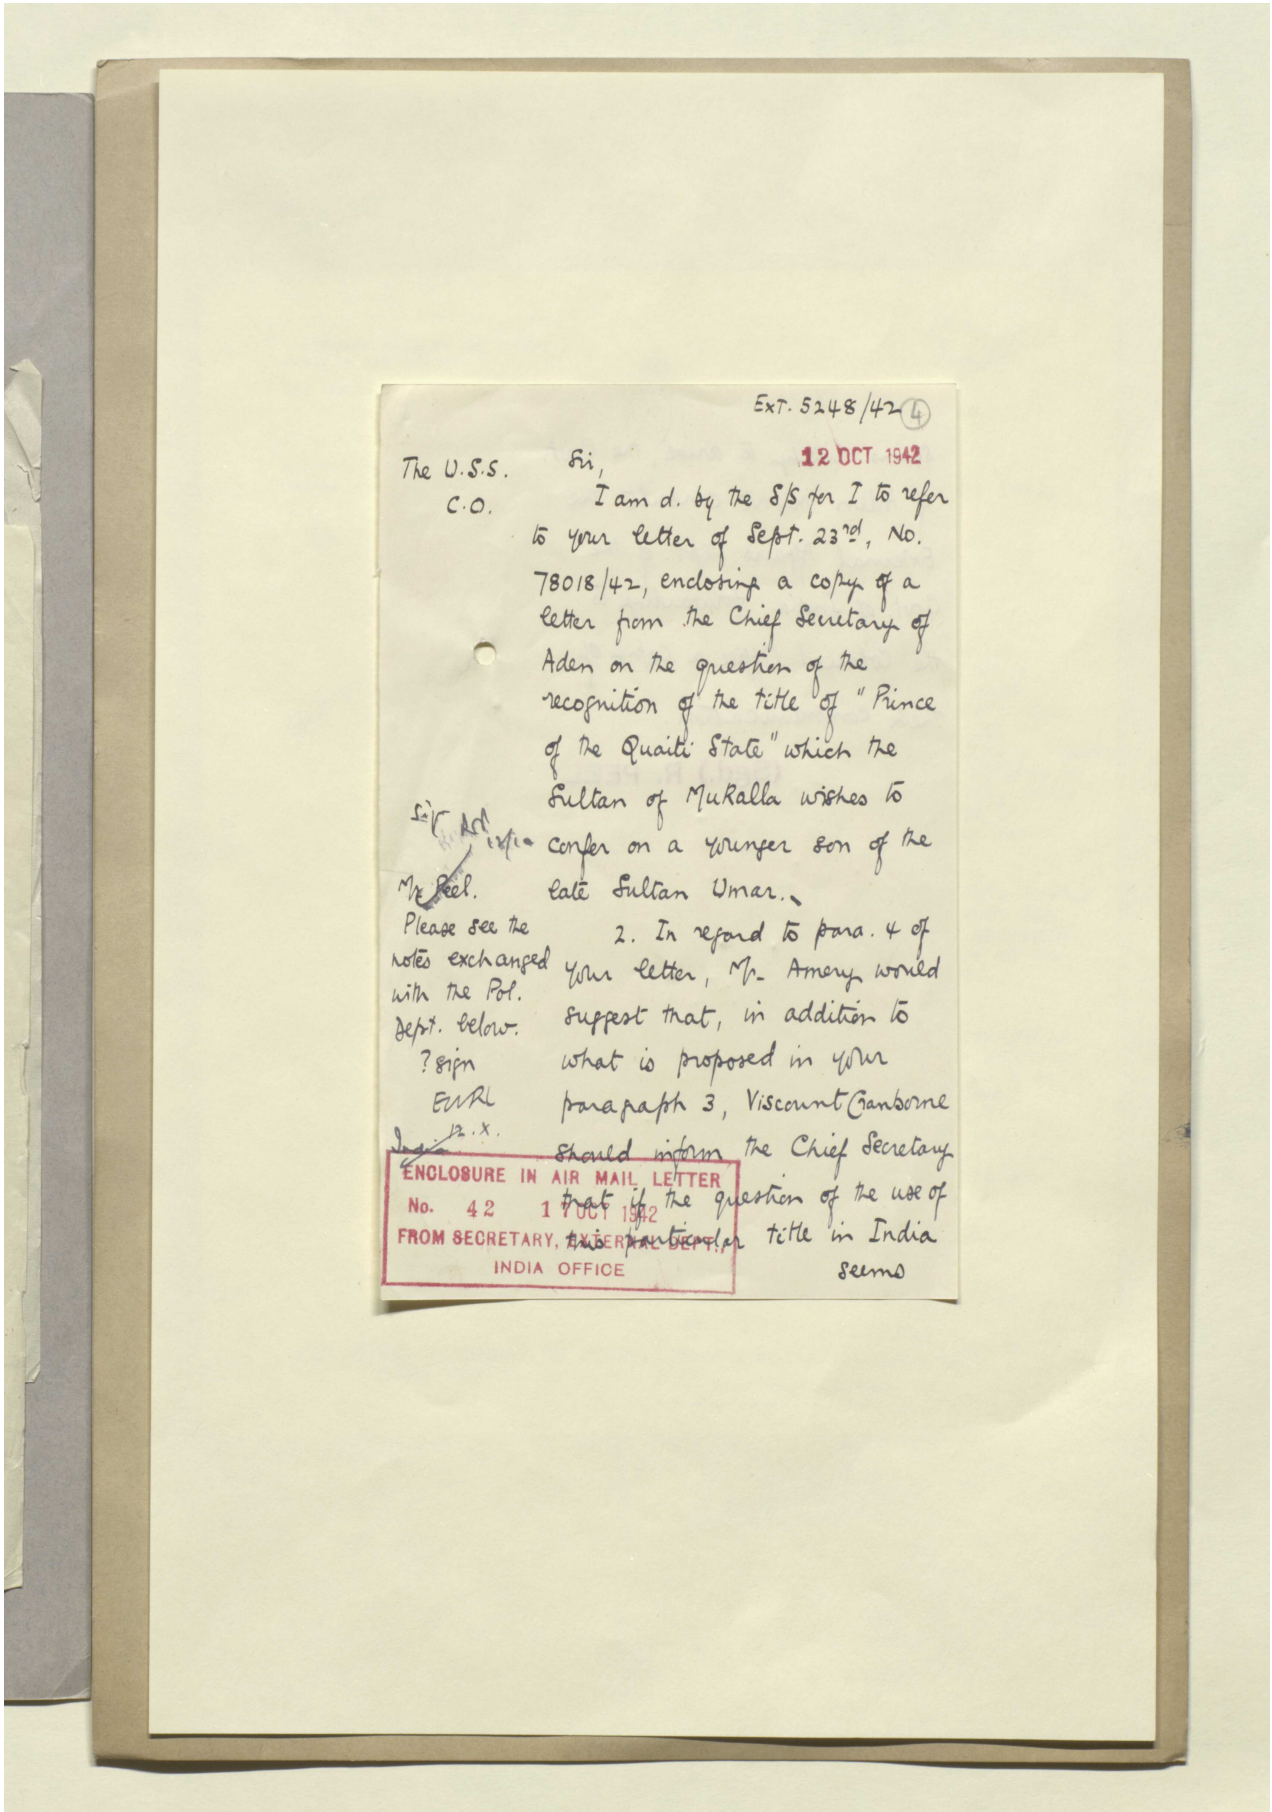 Ext. 5248/42 4
12 OCT 1942
The U.S.S.
C.O.
Sir,
I am d. by the S/S for I to refer
to your letter of Sept. 23rd, No.
78018/42, enclosing a copy of a
letter from the Chief Secretary of
Aden on the question of the
recognition of the title of "Prince
of the Quaiti State" which the
Sultan of Mukalla wishes to
confer on a younger son of the
late Sultan Umar.
2. In regard to para. 4 of
your letter, Mr. Amery would
suggest that, in addition to
what is proposed in your
paragraph 3, Viscount Cranborne
should inform the Chief Secretary
that if the question of the use of
this particular title in India
seems
12/10
Mr Peel.
Please see the
notes exchanged
with the Pol.
Dept. below.
? sign
12.X.
India
ENCLOSURE IN AIR MAIL LETTER
No. 42 17 OCT 1942
FROM SECRETARY, EXTERNAL DEPT.,
INDIA OFFICE